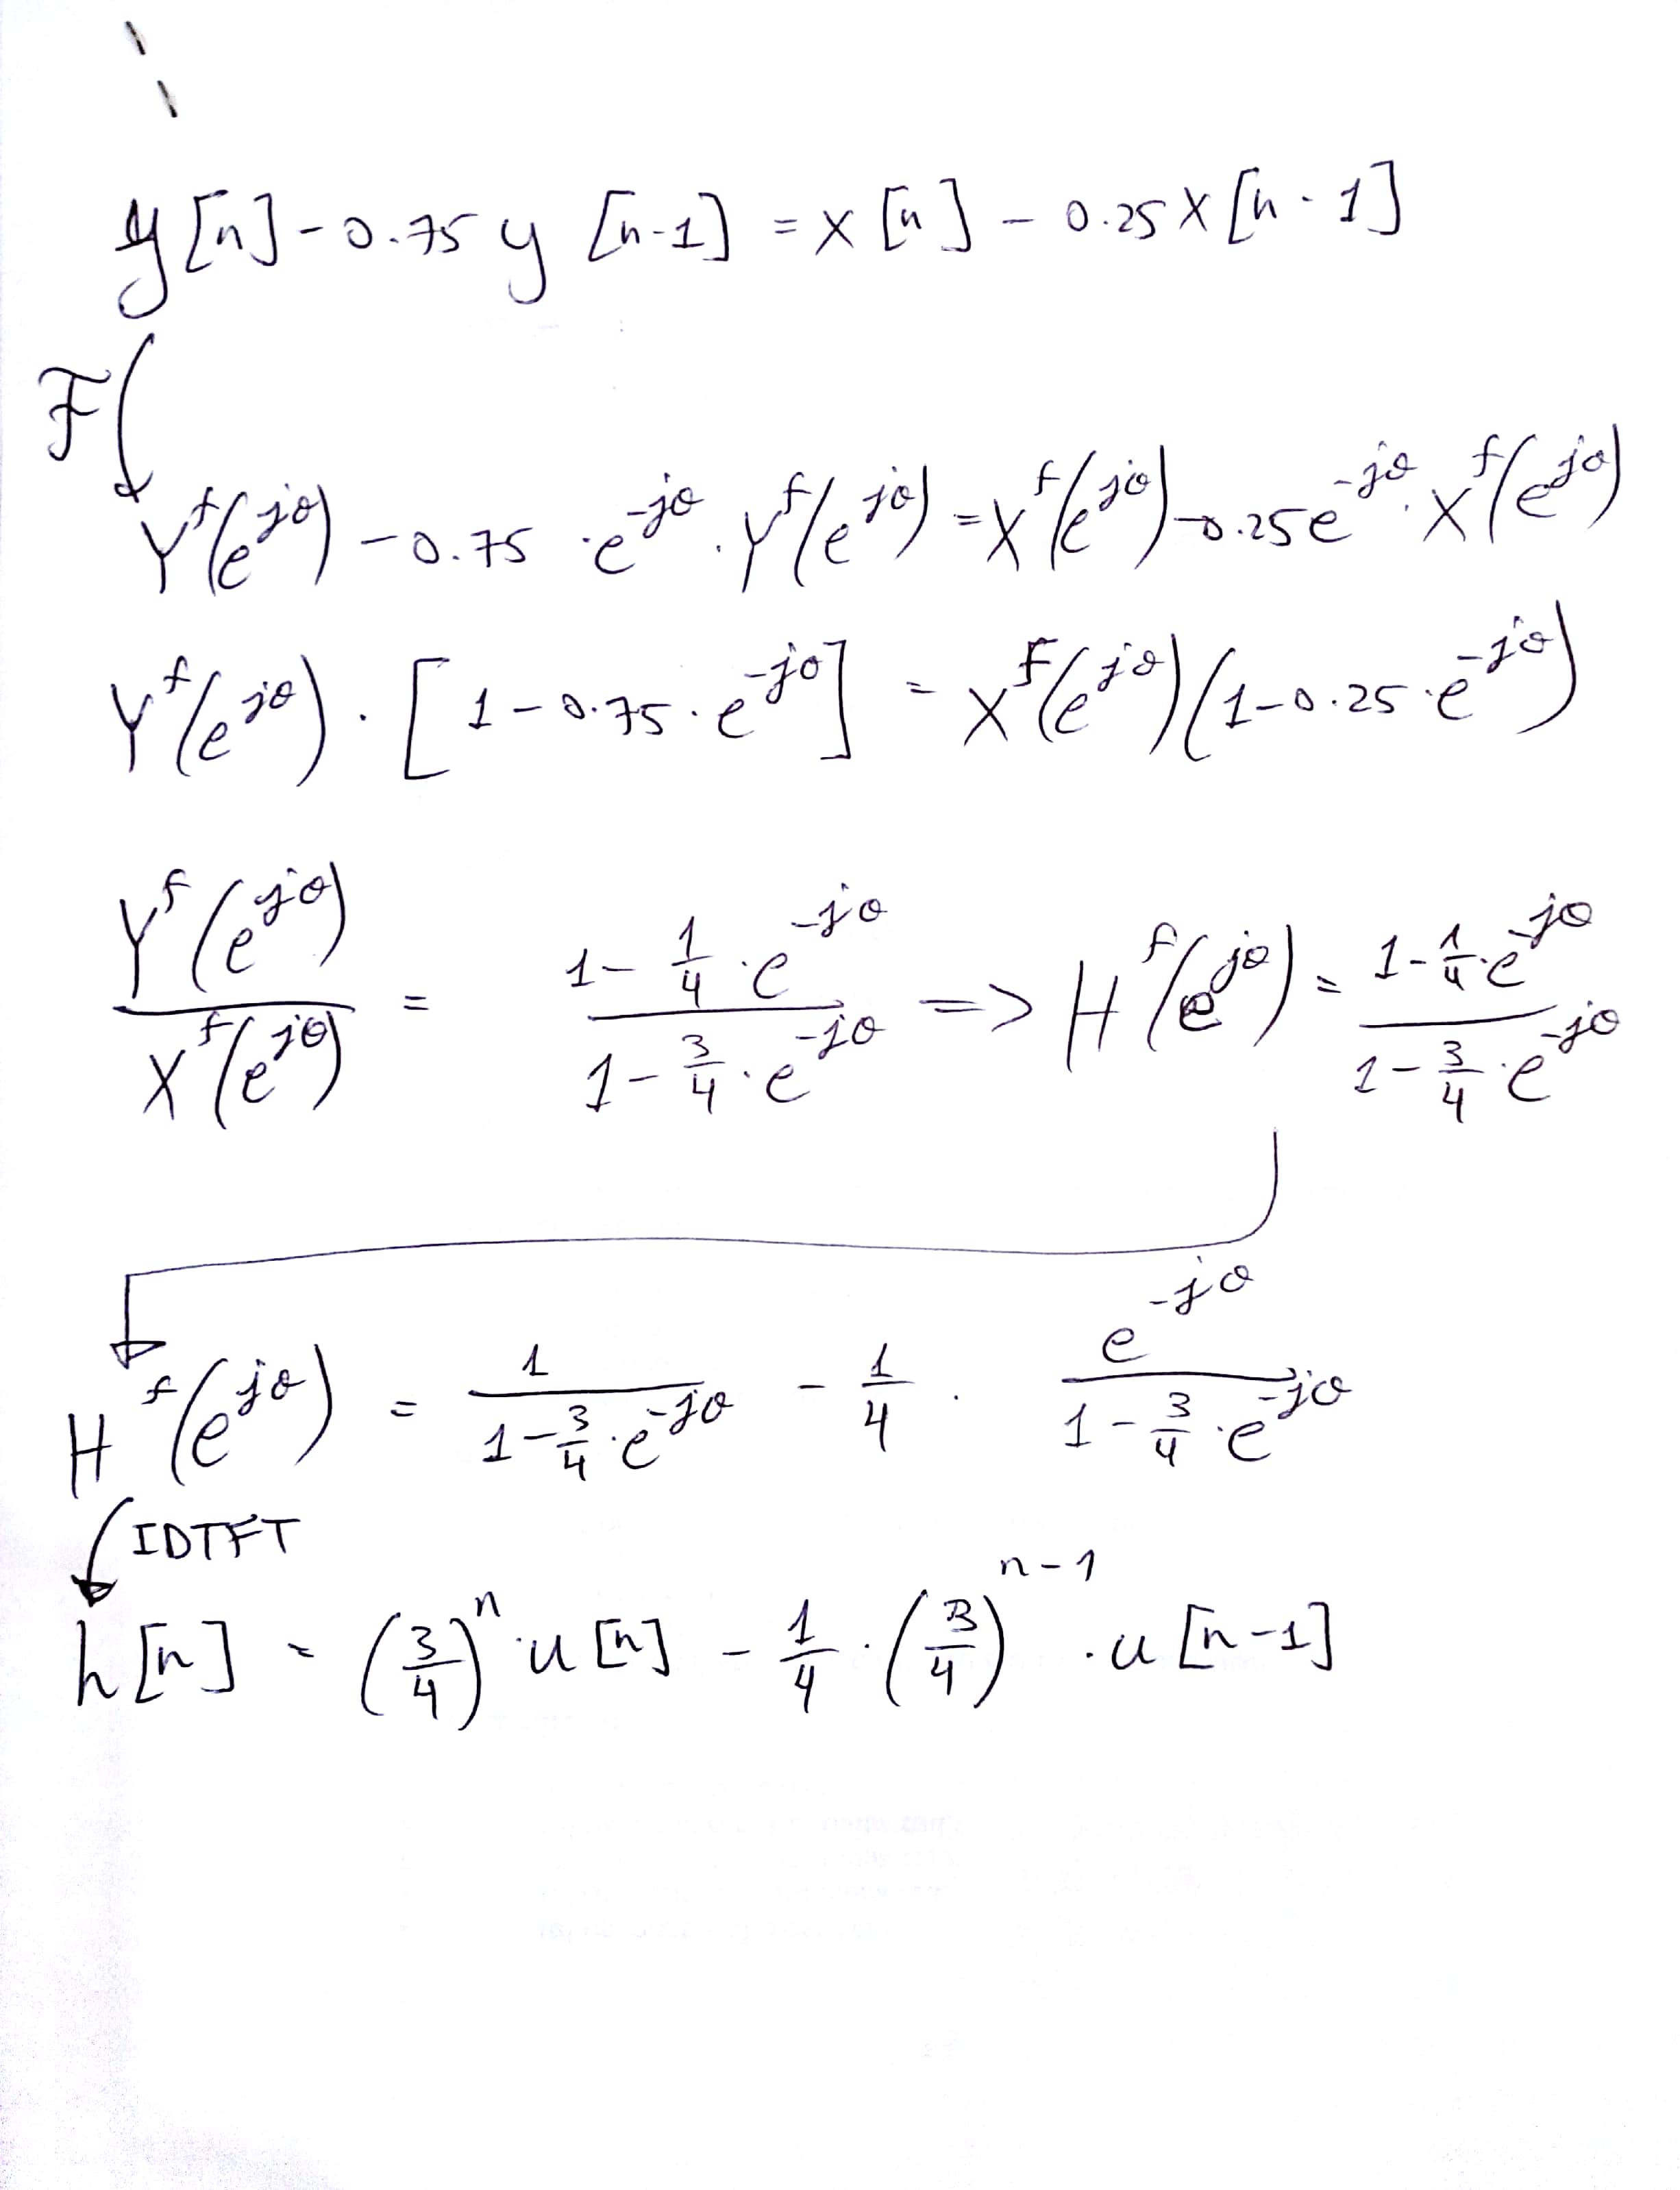 y[n] - 0.75 y [n-1] = x [n] - 0.25 x [n-1]
F(
Y^f(e^{jθ}) - 0.75 · e^{-jθ} · Y^f(e^{jθ}) = X^f(e^{jθ}) - 0.25 e^{-jθ} · X^f(e^{jθ})
Y^f(e^{jθ}) · [1 - 0.75 · e^{-jθ}] = X^f(e^{jθ}) (1 - 0.25 · e^{-jθ})
\frac{Y^f(e^{jθ})}{X^f(e^{jθ})} = \frac{1 - \frac{1}{4} · e^{-jθ}}{1 - \frac{3}{4} · e^{-jθ}} => H^f(e^{jθ}) = \frac{1 - \frac{1}{4} · e^{-jθ}}{1 - \frac{3}{4} · e^{-jθ}}
H^f(e^{jθ}) = \frac{1}{1 - \frac{3}{4} · e^{-jθ}} - \frac{1}{4} · \frac{e^{-jθ}}{1 - \frac{3}{4} · e^{-jθ}}
IDTFT
h[n] = (\frac{3}{4})^n · u[n] - \frac{1}{4} · (\frac{3}{4})^{n-1} · u[n-1]